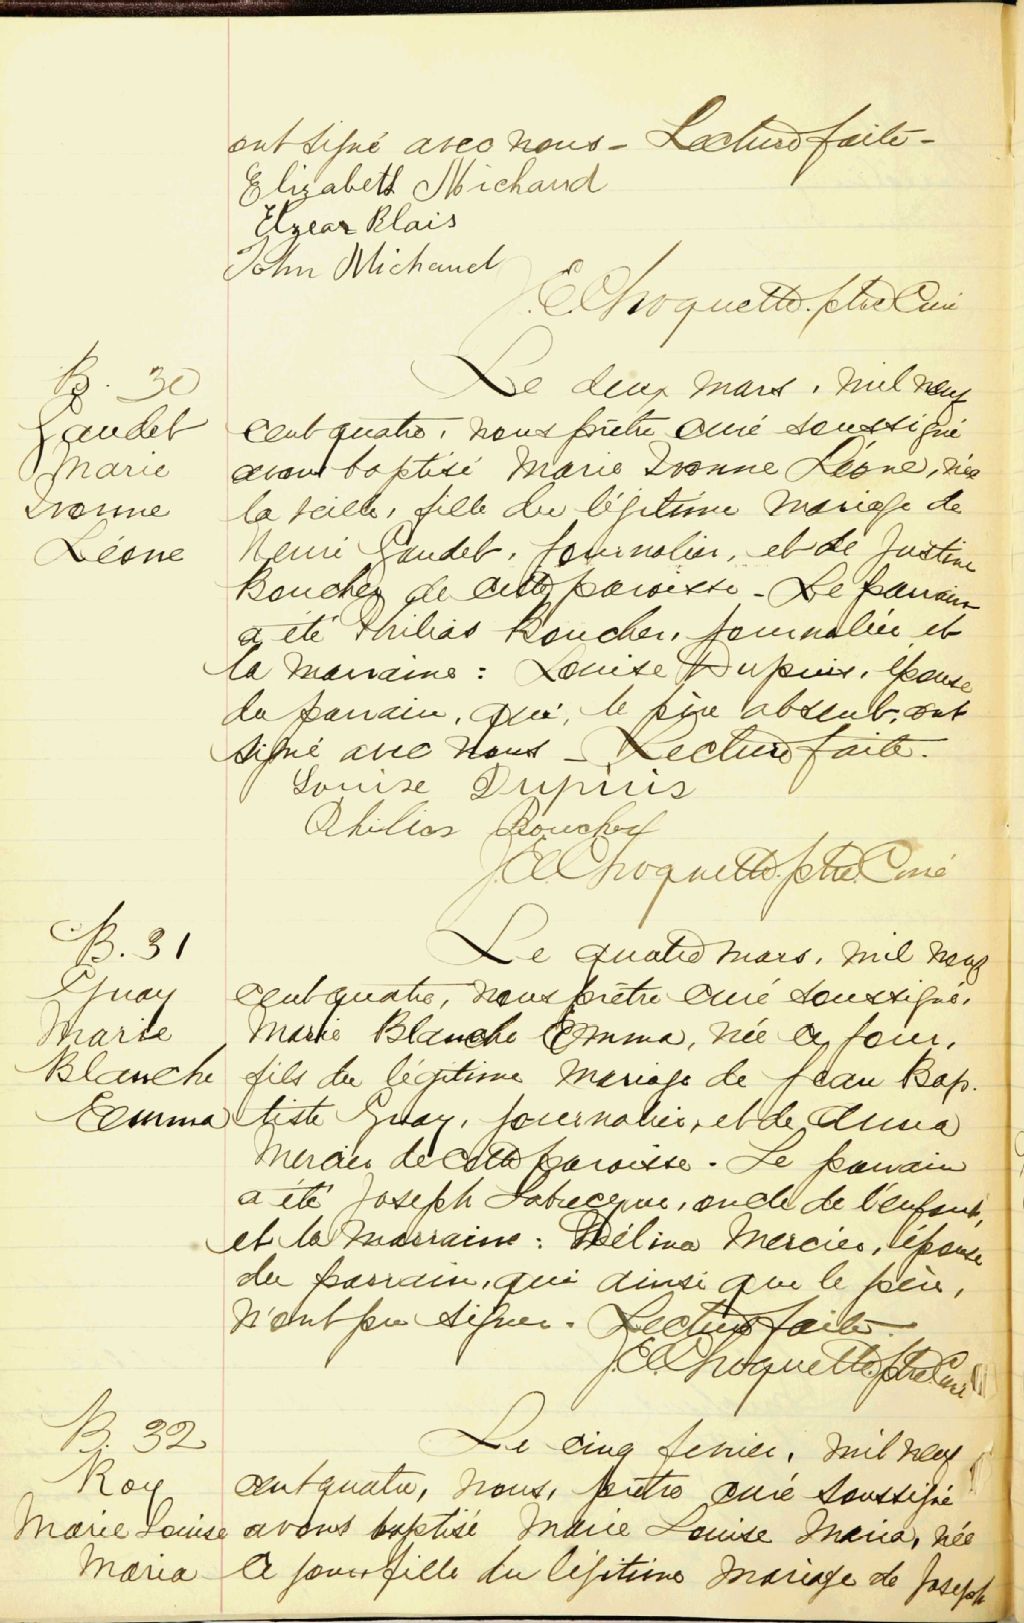 ont signé avec nous - Lecture faite -
Elizabeth Michaud
Elzear Blais
John Michaud
J.E. Choquette. ptre Curé
B. 30
Gaudet
Marie
Ivonne
Léone
Le deux mars, mil neuf
cent quatre, nous prêtre curé soussigné
avons baptisé Marie Ivonne Léone, née
la veille, fille du légitime mariage de
Henri Gaudet, journalier, et de Justine
Boucher de cette paroisse - Le parrain
a été Philias Boucher, journalier et
la marraine : Louise Dupuis, épouse
du parrain, qui, le père absent, ont
signé avec nous - Lecture faite.
Louise Dupuis
Philias Boucher
J.E. Choquette. ptre. Curé
B. 31
Guay
Marie
Blanche
Emma
Le quatre mars, mil neuf
cent quatre, nous prêtre curé soussigné,
Marie Blanche Emma, née ce jour,
fils du légitime mariage de Jean Bap-
tiste Guay, journalier, et de Anna
Mercier de cette paroisse. Le parrain
a été Joseph Labrecque, oncle de l'enfant,
et la marraine : Délina Mercier, épouse
du parrain, qui ainsi que le père,
n'ont pu signer. Lecture faite.
J.E. Choquette. ptre Curé
B. 32
Roy
Marie Louise
Maria
Le cinq fevrier, mil neuf
cent quatre, nous, prêtre curé soussigné
avons baptisé Marie Louise Maria, née
ce jour fille du légitime mariage de Joseph